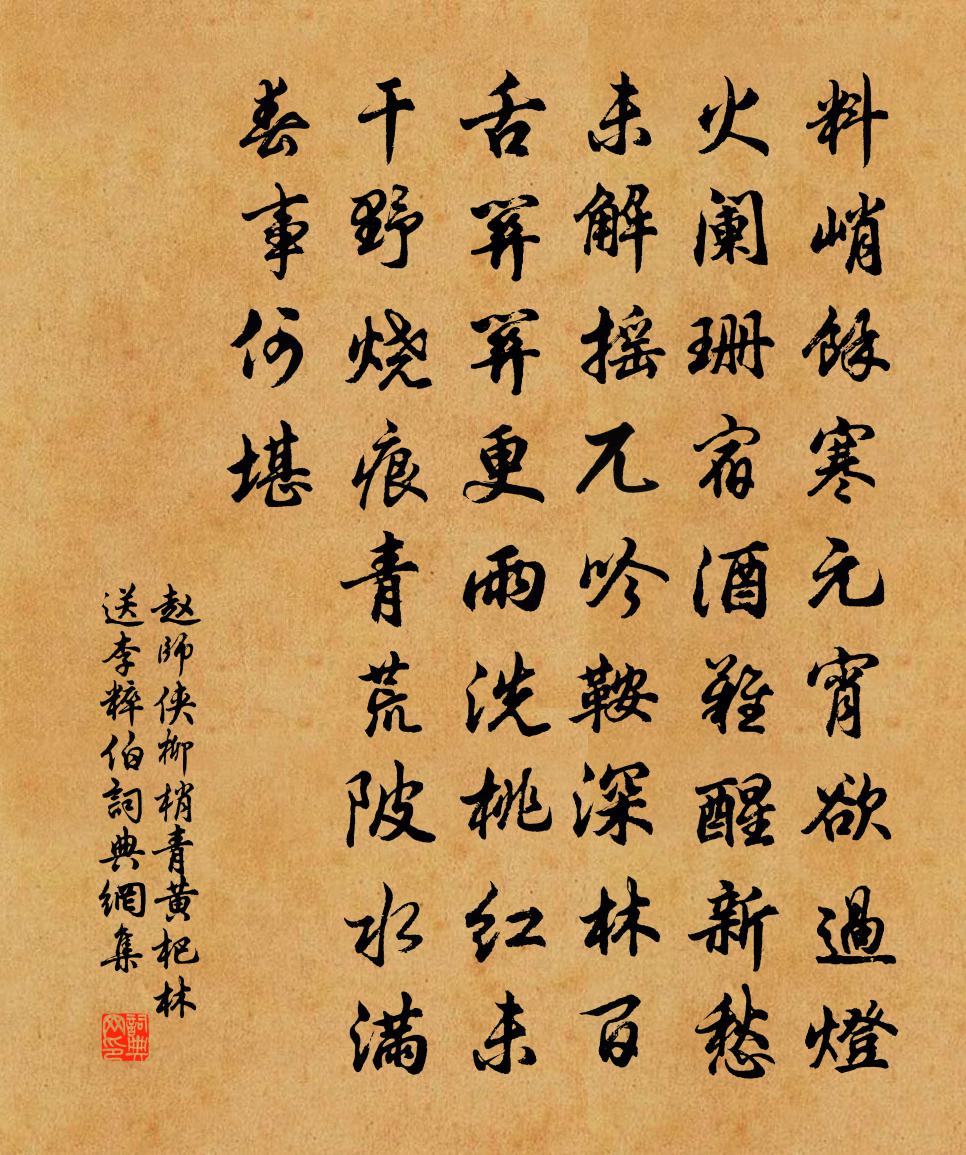 料峭餘寒元宵欲過燈
火阑珊宿酒難醒新愁
未解摇兀吟鞍深林百
舌関関更雨洗桃红未
干野烧痕青荒陂水满
春事何堪
赵師侠柳梢青黄杞林
送李粹伯詞典網集
詞典网印